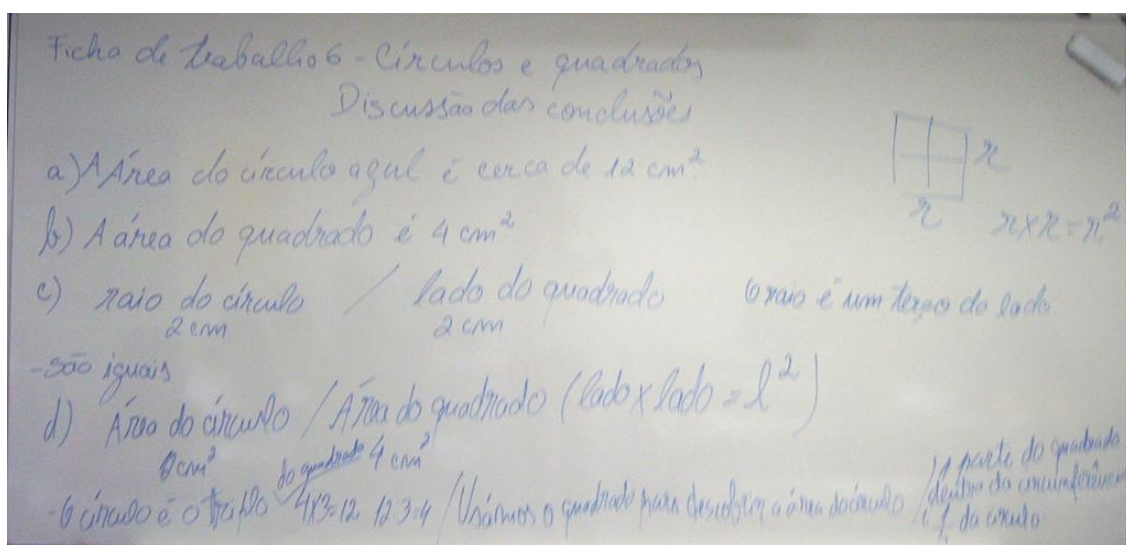 Ficha de trabalho 6 - Círculos e quadrados
Discussão das conclusões
a) A Área do círculo azul é cerca de 12 cm².
r
r
r x r = r²
b) A área do quadrado é 4 cm²
c) raio do círculo / lado do quadrado
O raio é um terço do lado
2 cm 2 cm
- São iguais
d) Área do círculo / Área do quadrado (lado x lado = l²)
cm² 4 cm²
- O círculo é o triplo do quadrado 4x3=12 12:3=4 / Usámos o quadrado para descobrir a área do círculo /
parte do quadrado
dentro da circunferência
do círculo